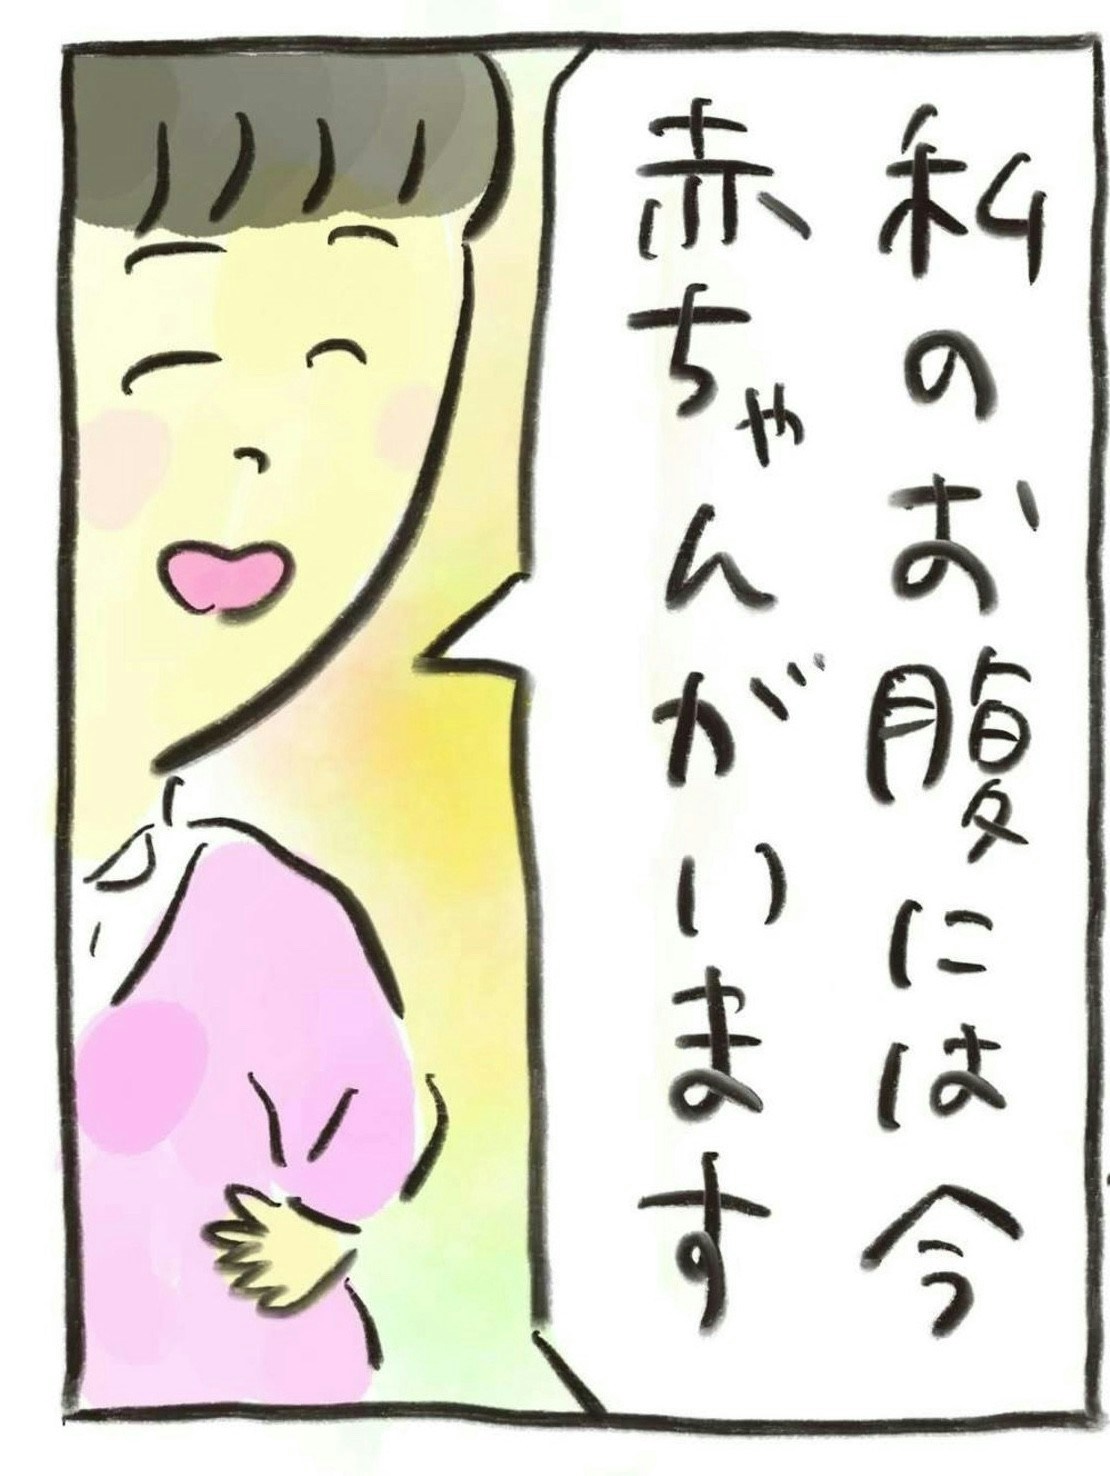 私のお腹には今
赤ちゃんがいます